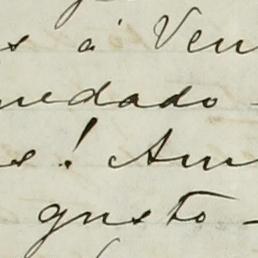 s á Ven
uedado -
s! Am
gusto -